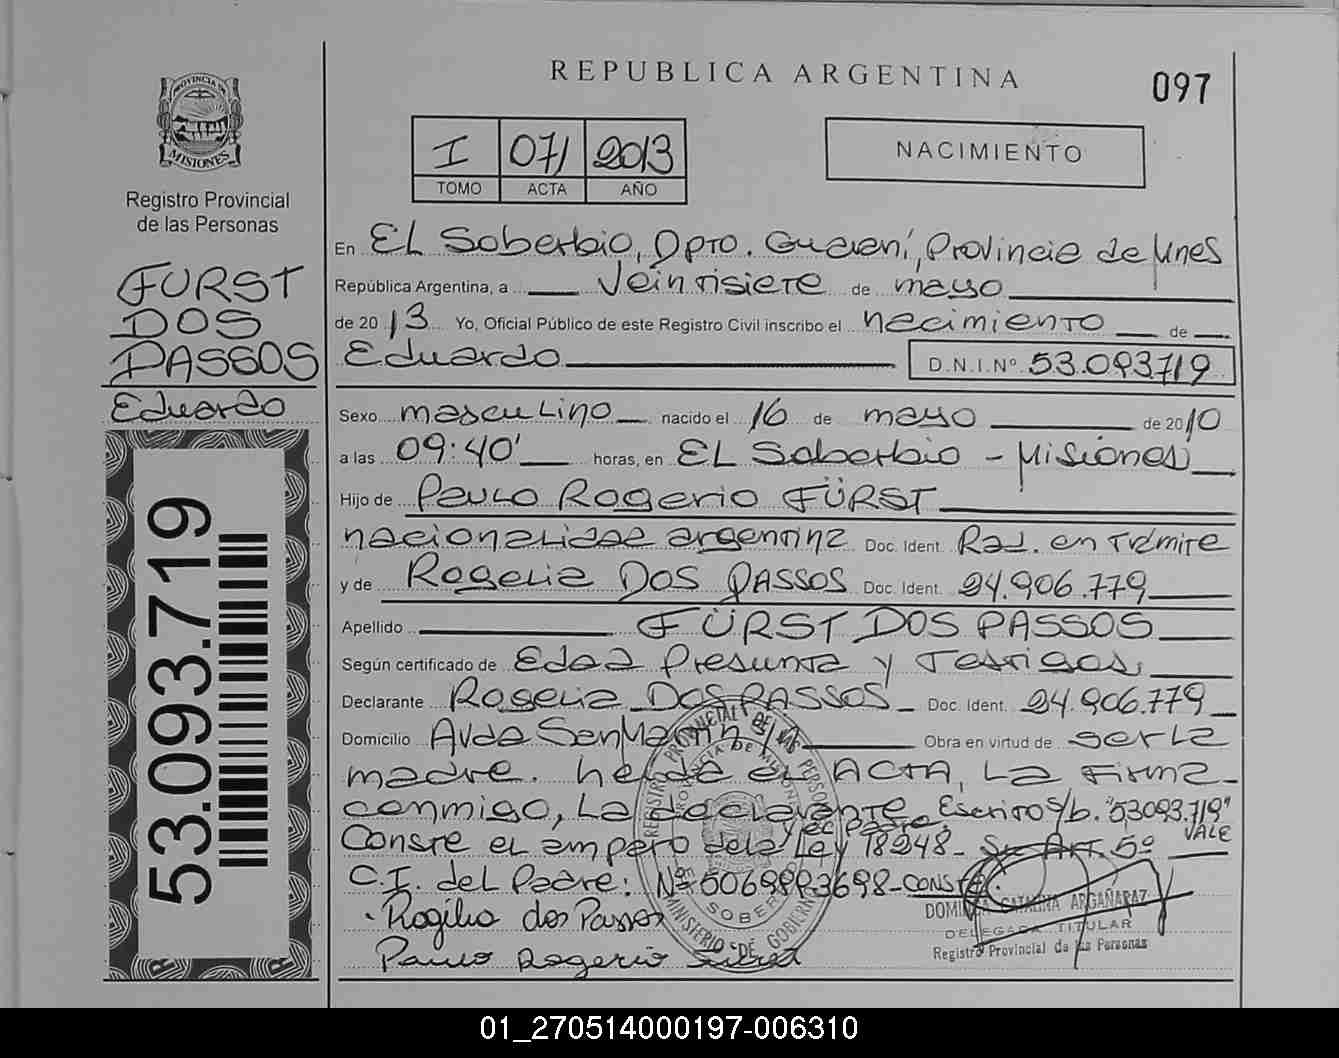 REPUBLICA ARGENTINA
097
PROVINCIA DE
MISIONES
Registro Provincial
de las Personas
I 071 2013
TOMO ACTA AÑO
NACIMIENTO
FURST
DOS
PASSOS
Eduardo
53.093.719
En EL Soberbio, Dpto. Guaraní, Provincia de Mnes
República Argentina, a Veintisiete de mayo
de 2013 Yo, Oficial Público de este Registro Civil inscribo el nacimiento de
Eduardo D.N.I.Nº 53.093719
Sexo masculino nacido el 16 de mayo de 2010
a las 09:40' horas, en EL Soberbio - Misiones
Hijo de Paulo Rogerio FÜRST
nacionalidad argentina Doc. Ident. Rad. en trámite
y de Rogelia DOS PASSOS Doc. Ident. 24.906.779
Apellido FÜRST DOS PASSOS
Según certificado de Edad Presunta y Testigos,
Declarante Rogelia DOS PASSOS Doc. Ident. 24.906.779
Domicilio Avda San Martín Obra en virtud de ser la
madre. heída el ACTA, La firma
conmigo, La declarante Escrito s/b. "53093.719"
y el padre VALE
Conste el amparo de la Ley 18248- Art. 5º
C.I. del Padre: Nº 5069883698-CONSTE.
Rogilia dos Passos
Paulo Rogerio
REGISTRO PROVINCIAL DE LAS PERSONAS
PROVINCIA DE MISIONES
MINISTERIO DE GOBIERNO
SOBERBIO
DOMINGA CATALINA ARGAÑARAZ
DELEGADA TITULAR
Registro Provincial de las Personas
01_270514000197-006310